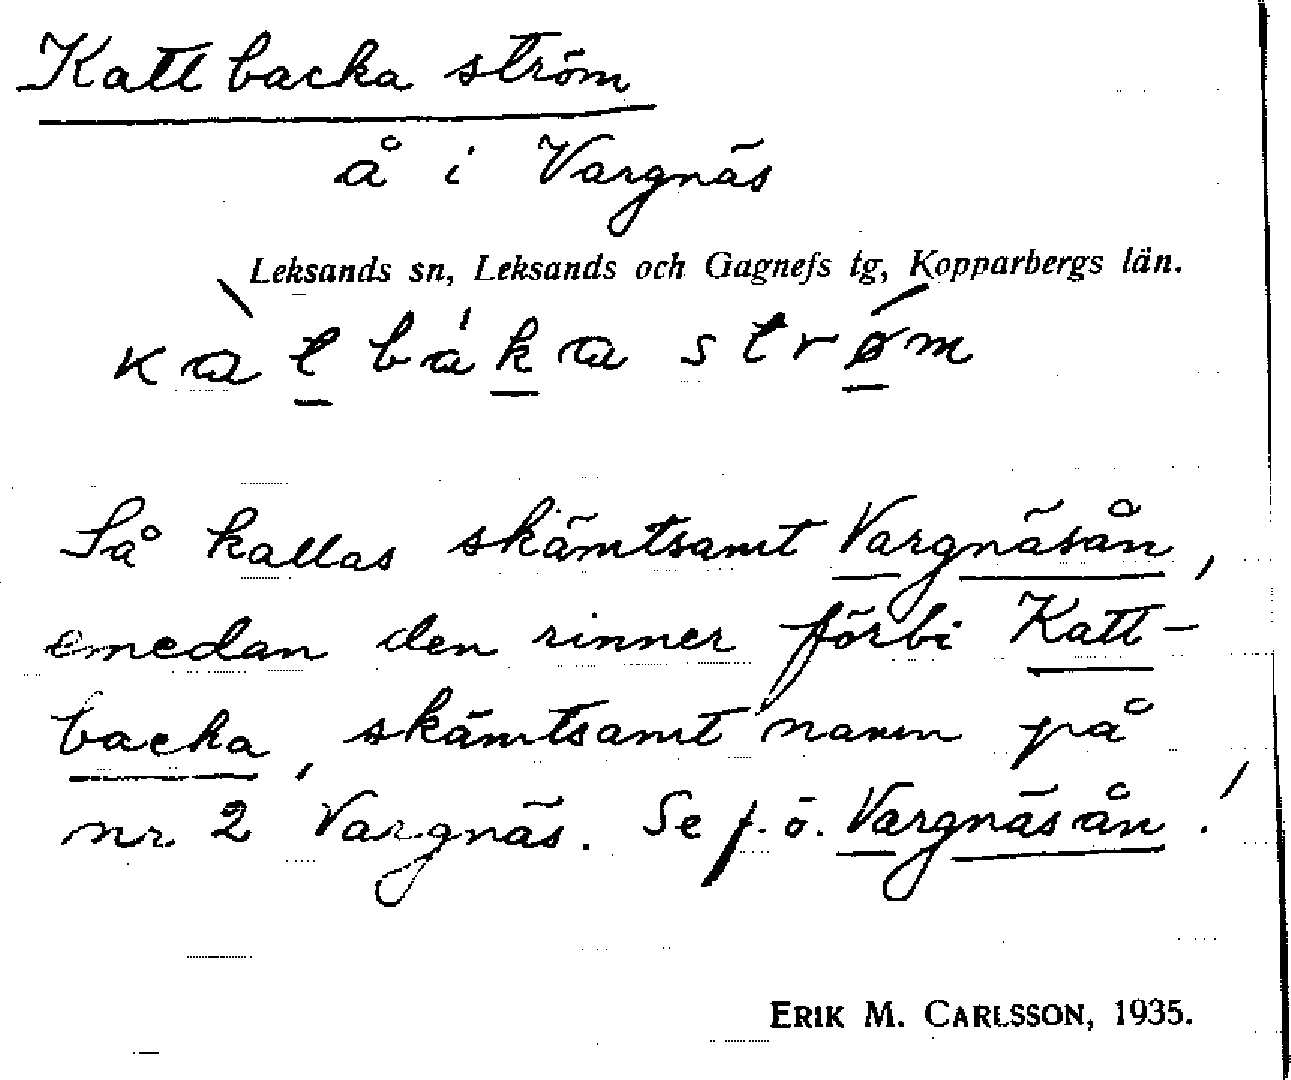 Kattbacka ström
å i Vargnäs
Leksands sn, Leksands och Gagnefs tg, Kopparbergs län.
kàt̲bák̲a strǿ̲m
Så kallas skämtsamt Vargnäsån,
emedan den rinner förbi Katt-
backa, skämtsamt namn på
nr 2 Vargnäs. Se f. ö. Vargnäsån!
ERIK M. CARLSSON, 1935.